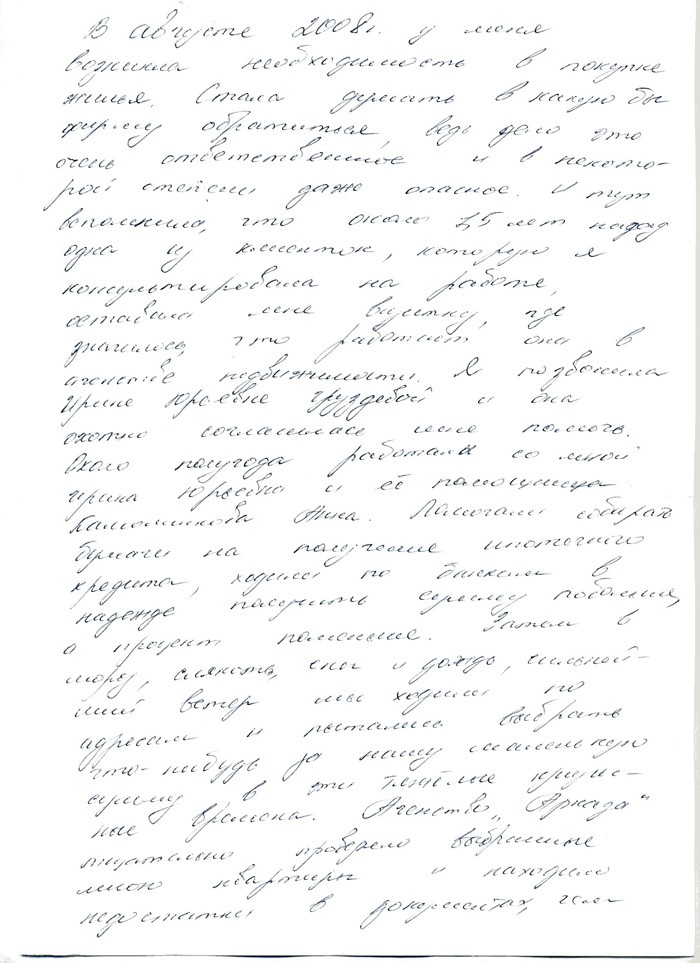 В августе 2008г. у меня
возникла необходимость в покупке
жилья. Стала думать в какую бы
фирму обратиться, ведь дело это
очень ответственное и в некото-
рой степени даже опасное. И тут
вспомнила, что около 1,5 лет назад
одна из клиенток, которую я
консультировала на работе,
оставила мне визитку, где
значилось, что работает она в
агенстве недвижимости. Я позвонила
Ирине Юрьевне Груздевой и она
охотно согласилась мне помочь.
Около полугода работали со мной
Ирина Юрьевна и её помощница
Анна. Помогали собирать
бумаги на получение ипотечного
кредита, ходили по банкам в
надежде получить сумму побольше,
а процент поменьше. Затем в
мороз, слякоть, снег и дождь, сильней-
ший ветер мы ходили по
адресам и пытались выбрать
что-нибудь за нашу маленькую
сумму в эти тяжёлые кризис-
ные времена. Агенство „Аркада"
тщательно проверяло выбранные
мною квартиры и находило
недостатки в документах, чем